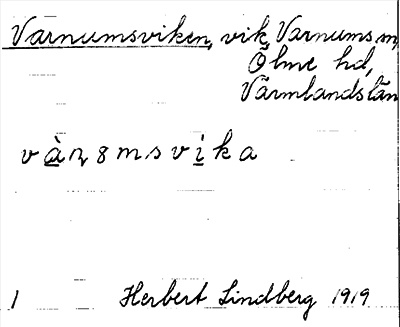 Varnumsviken, vik, Varnums sn,
Ölme hd,
Värmlands län
vàɳ8msvika
1 Herbert Lindberg 1919